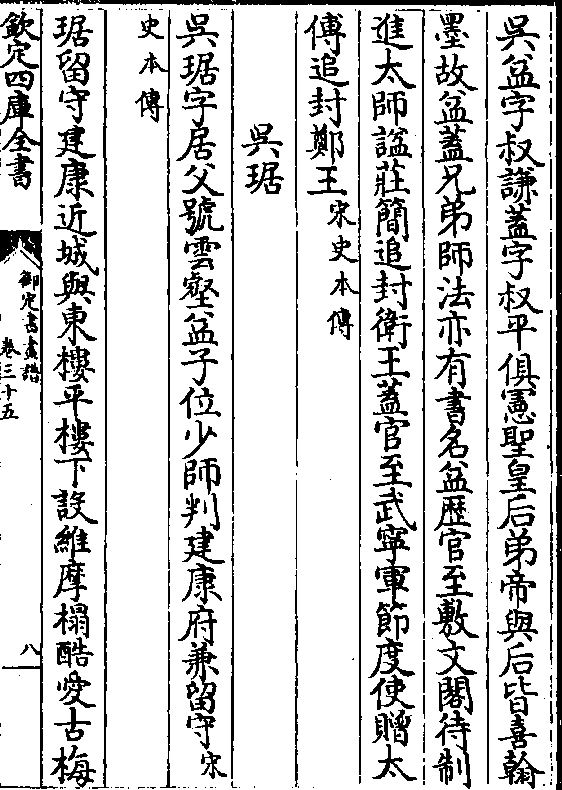 吳益字叔謙蓋字叔平俱憲聖皇后弟帝與后皆喜翰
墨故益蓋兄弟師法亦有書名益歴官至敷文閣待制
進太師諡莊簡追封衛王蓋官至武寧軍節度使贈太
傅追封鄭王宋史本傳
吳琚
吳琚字居父號雲壑益子位少師判建康府兼留守宋
史本傳
琚留守建康近城與東樓平樓下設維摩榻酷愛古梅
欽定四庫全書
御定書畫譜
卷三十五
八